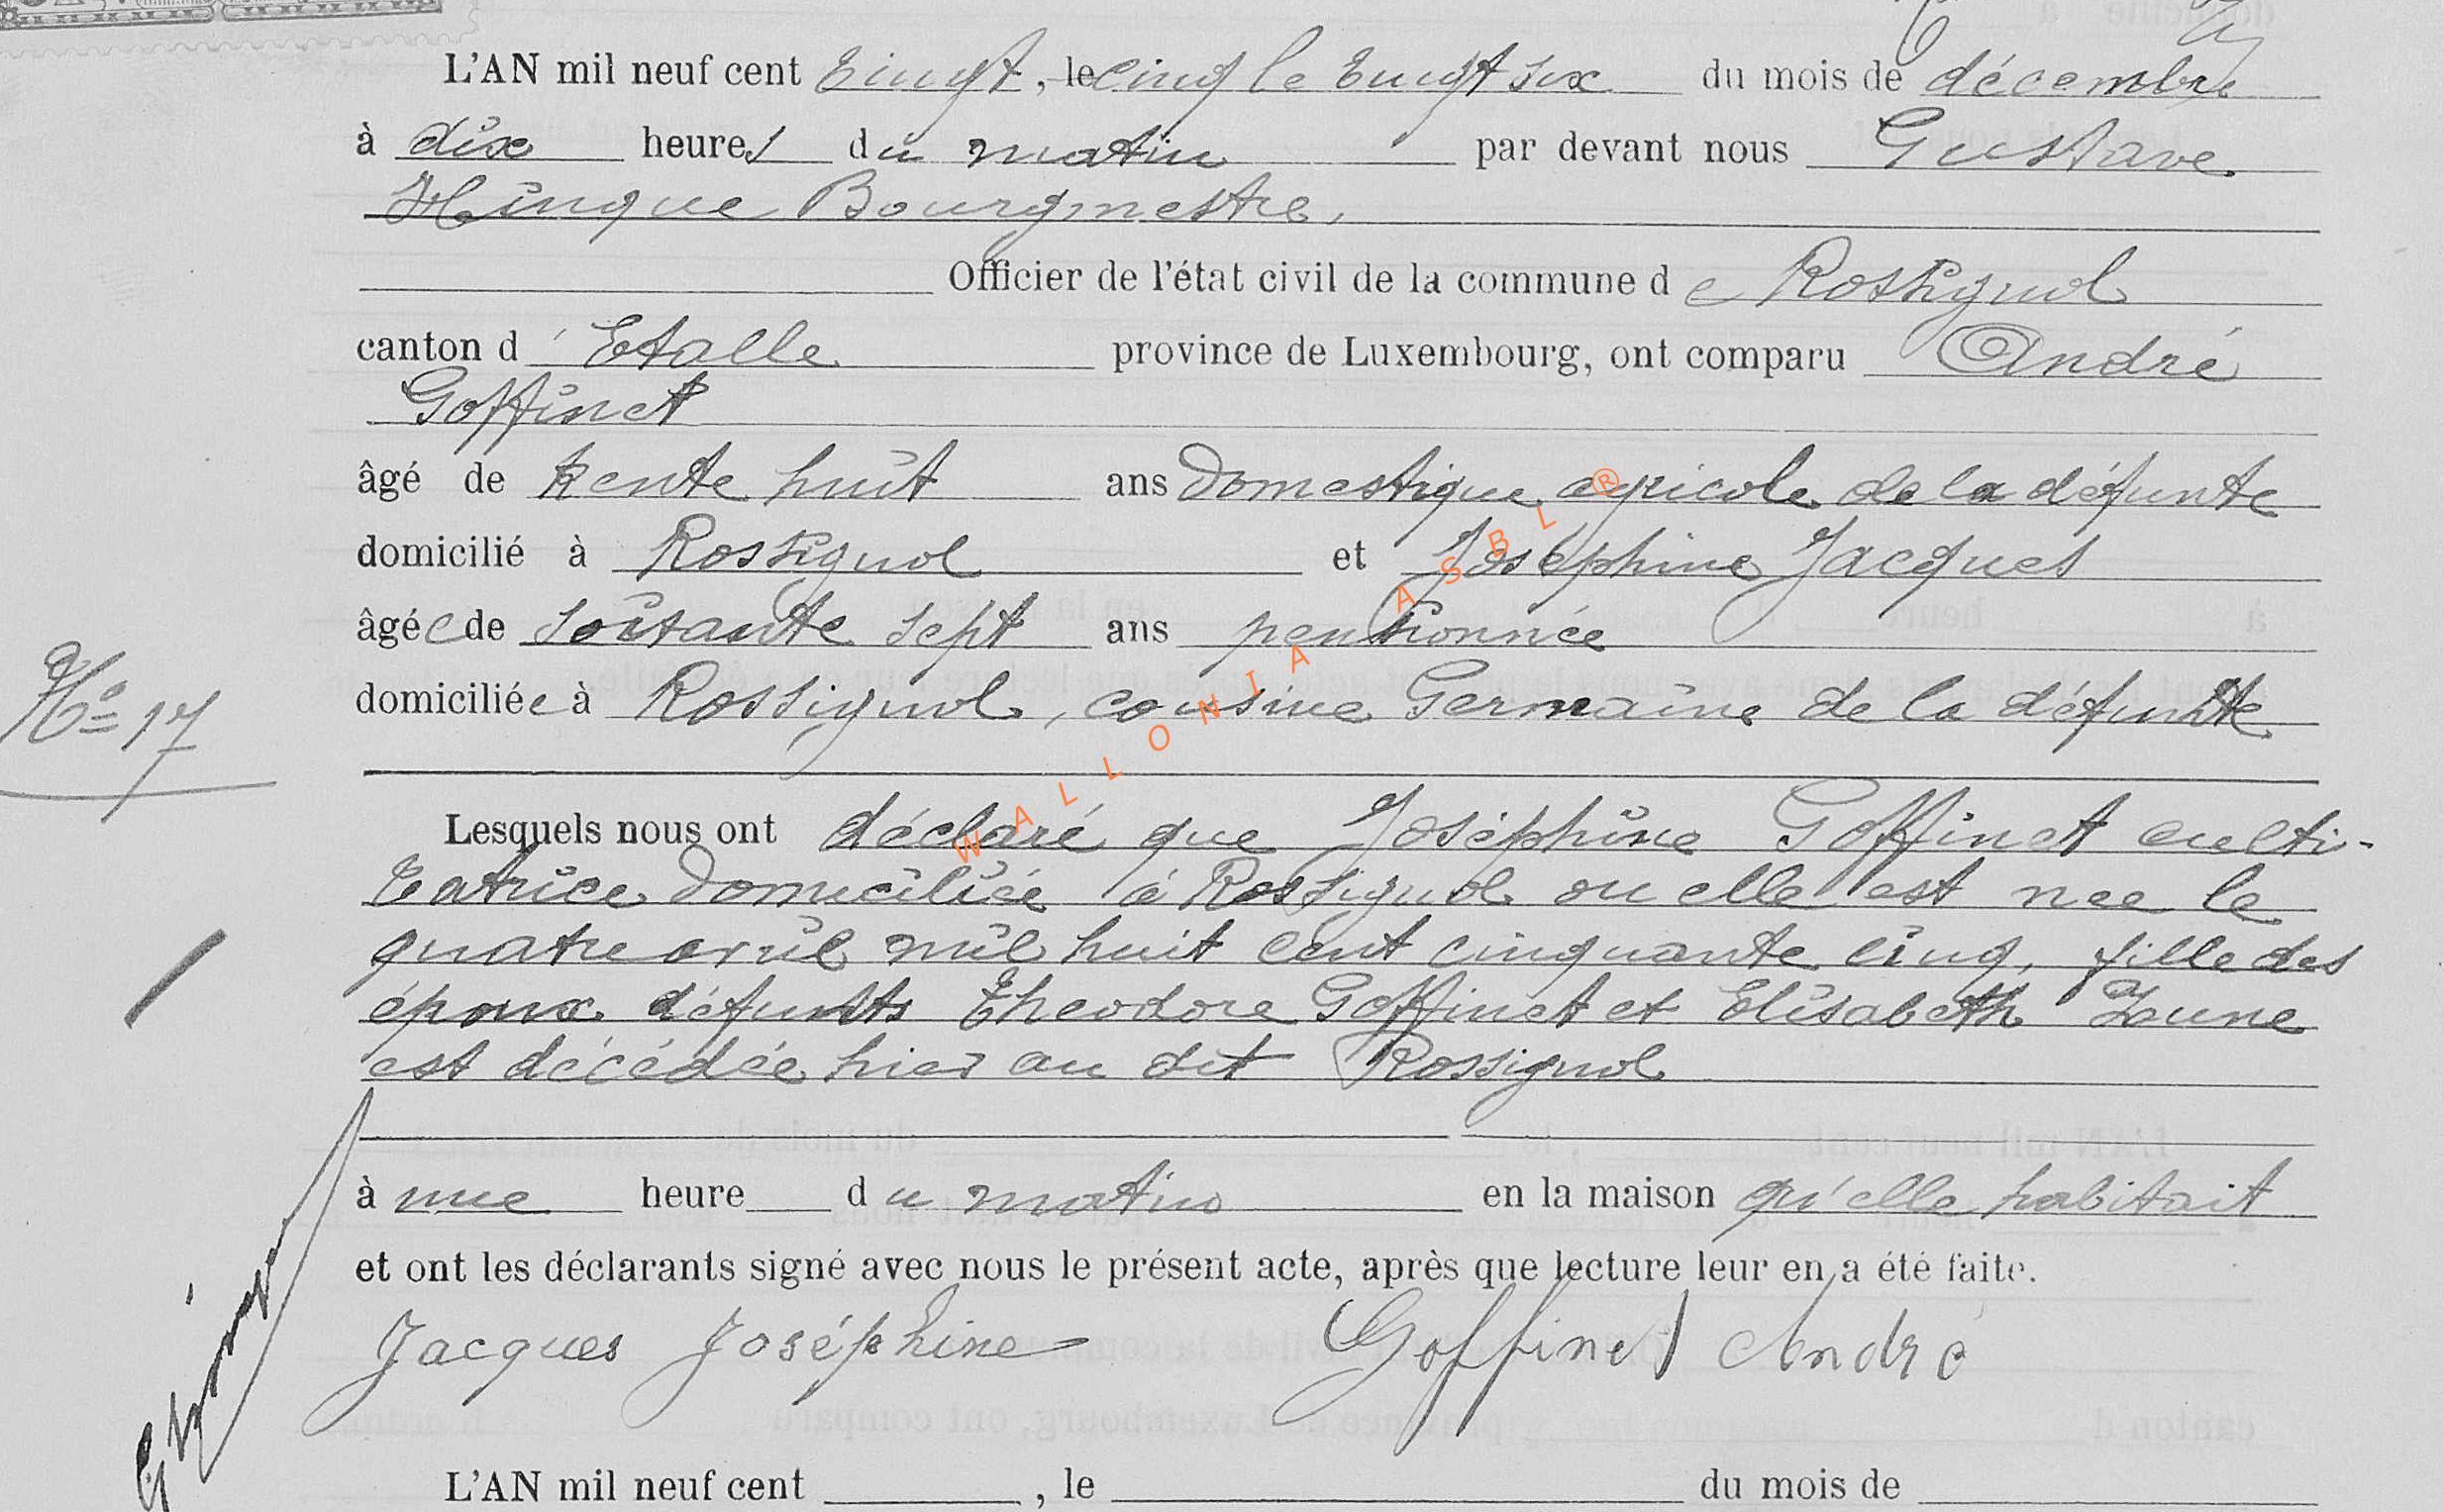 L'AN mil neuf cent vingt, le cinq le vingt six du mois de décembre
à dix heures du matin par devant nous Gustave
Hinque Bourgmestre,
Officier de l'état civil de la commune de Rossignol
canton d'Etalle province de Luxembourg, ont comparu André
Goffinet
âgé de trente huit ans Domestique agricole de la défunte
domicilié à Rossignol et Joséphine Jacques
âgée de soixante sept ans pensionnée
domiciliée à Rossignol, cousine Germaine de la défunte
N° 17
Lesquels nous ont déclaré que Joséphine Goffinet culti-
vatrice domiciliée à Rossignol ou elle est née le
quatre avril mil huit cent cinquante cinq, fille des
époux défunts Theodore Goffinet et Elisabeth Zune
est décédée hier au dit Rossignol
à une heure du matin en la maison qu'elle habitait
et ont les déclarants signé avec nous le présent acte, après que lecture leur en a été faite.
Jacques Joséphine Goffinet André
L'AN mil neuf cent , le du mois de
WALLONIA ASBL ®